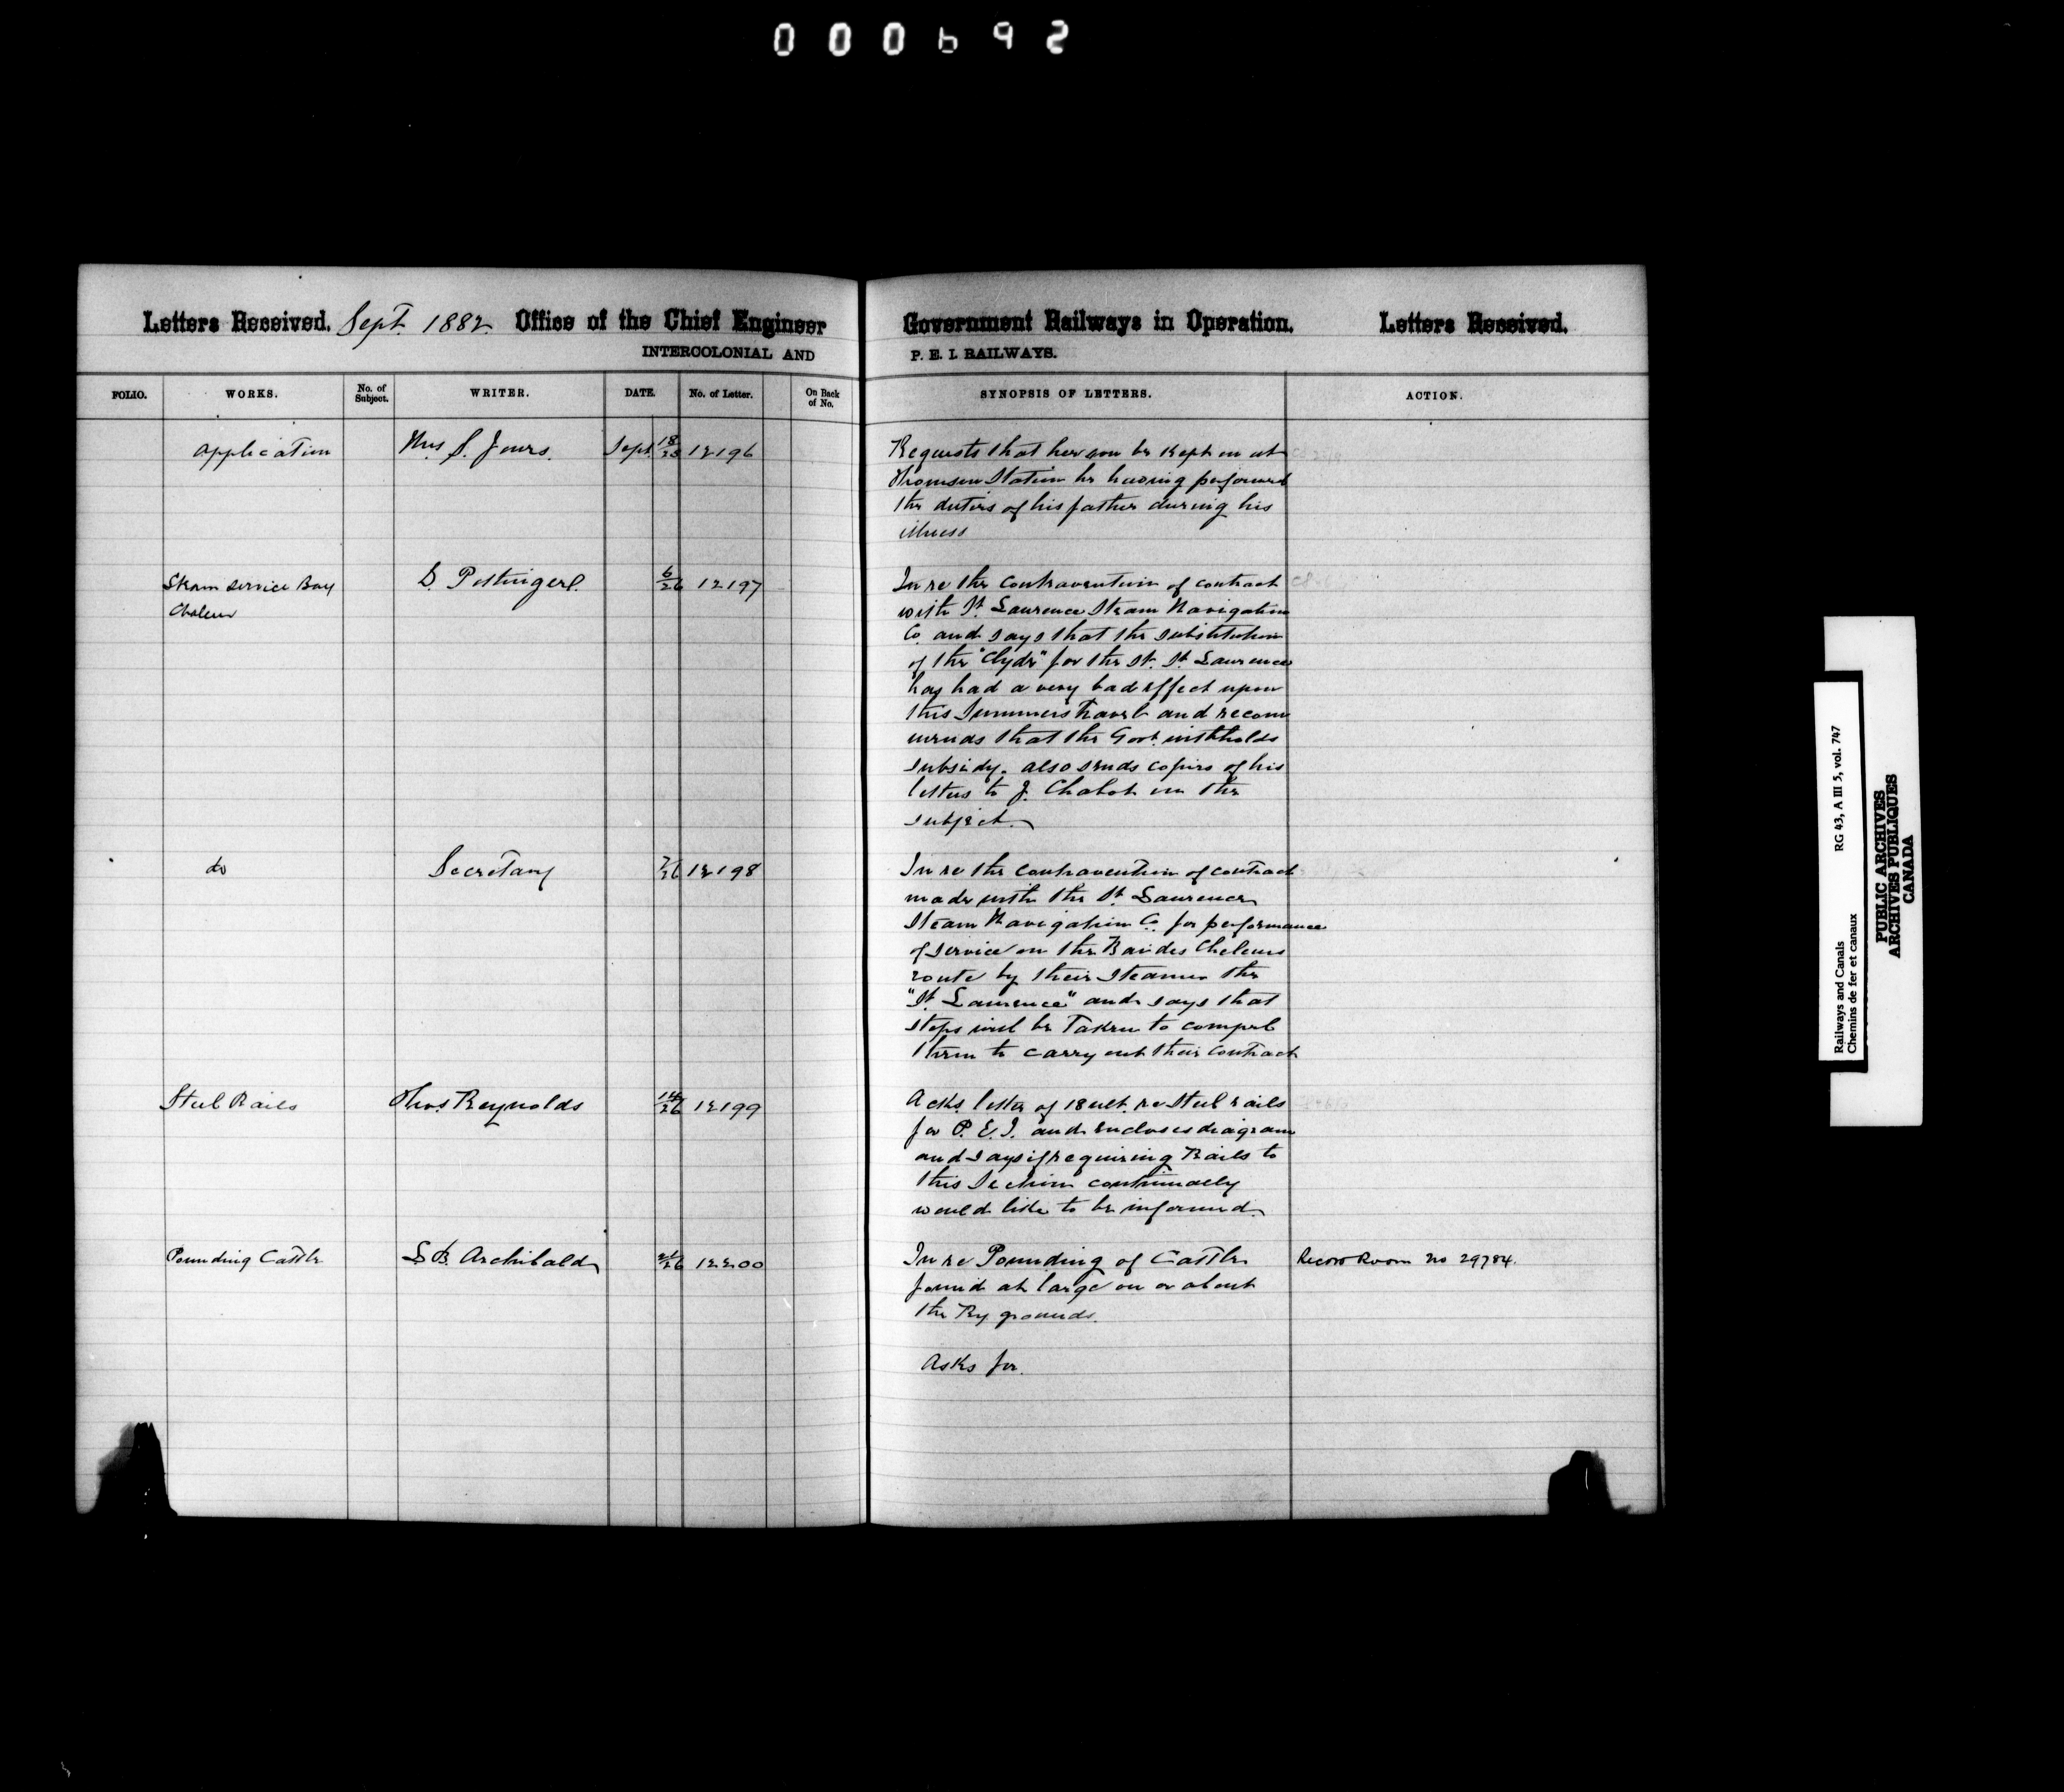 000692
Letters Received. Sept. 1882 Office of the Chief Engineer Government Railways in Operation. Letters Received.
INTERCOLONIAL AND P. E. I. RAILWAYS.
FOLIO. WORKS. No. of Subject. WRITER. DATE. No. of Letter. On Back of No. SYNOPSIS OF LETTERS. ACTION.
Application Mrs S. Jones. Sept. 18/25 12196 Requests that her son be kept on at
Thomson Station he having performed
the duties of his father during his
illness
Steam Service Bay D. Pottinger. 6/26 12197 In re the contravention of contract
Chaleur with St Laurence Steam Navigation
Co. and says that the substitution
of the "Clyde" for the St. St Laurence
has had a very bad effect upon
this Summers travel and recom
mends that the Govt. withholds
subsidy. also sends copies of his
letters to J. Chabot on the
subject.
do Secretary 7/26 12198 In re the contravention of contract
made with the St Laurence
Steam Navigation Co. for performance
of service on the Bai des Cheleurs
route by their Steamer the
"St Laurence" and says that
steps will be Taken to compel
them to carry out their contract
Steel Rails Thos Reynolds 14/26 12199 Acks letter of 18 ult. re Steel rails
for P. E. I. and encloses diagram
and says if requiring Rails to
this Section continually
would like to be informed.
Pounding Cattle S B. Archibald 21/26 12200 In re Pounding of Cattle Record Room No 29784.
found at large on or about
the Ry grounds.
Asks for.
Railways and Canals RG 43, A III 5, vol. 747
Chemins de fer et canaux
PUBLIC ARCHIVES
ARCHIVES PUBLIQUES
CANADA